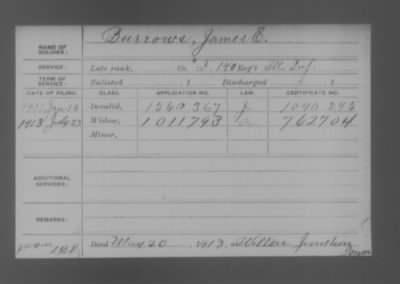 NAME OF SOLDIER: Burrows, James E.
SERVICE: Late rank, Co. I, 140 Reg't Ill. Inf.
TERM OF SERVICE: Enlisted , 1 Discharged , 1
DATE OF FILING. CLASS. APPLICATION NO. LAW. CERTIFICATE NO.
Invalid, 1260 367
1913 July 23 Widow, 1011793 762704
Minor,
ADDITIONAL SERVICES:
REMARKS:
Died May 20, 1913, at Wilton Junction Iowa